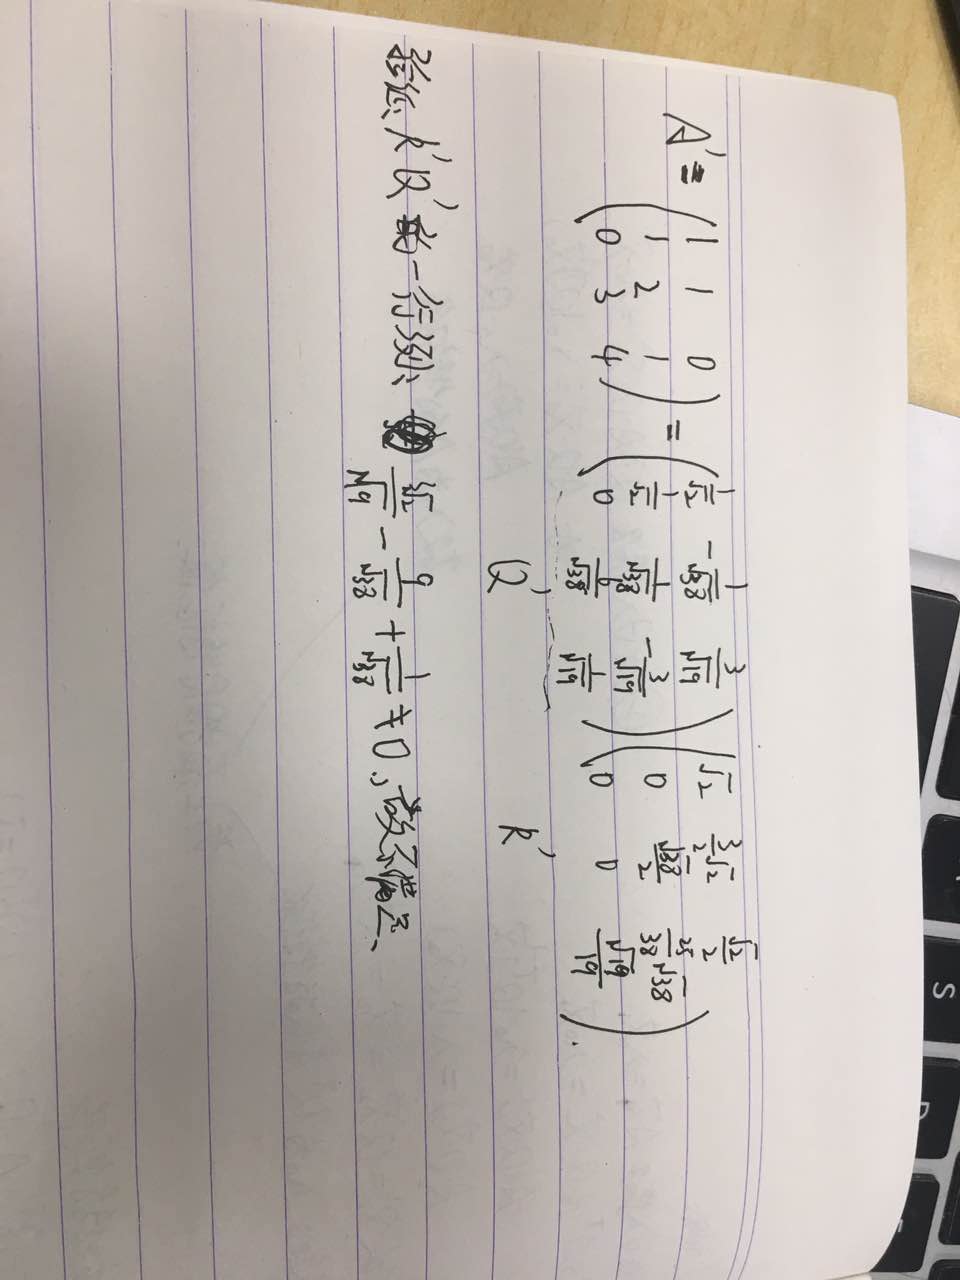 A' = ( 1 1 0 ; 1 2 1 ; 0 3 4 ) = ( 1/√2 -1/√38 3/√19 ; 1/√2 1/√38 -3/√19 ; 0 6/√38 1/√19 ) ( √2 3/2√2 √2/2 ; 0 √38/2 25/38√38 ; 0 0 √19/19 ).
Q' R'
验证 R'Q' 的一行3列: 3√2/√19 - 9/√38 + 1/√38 ≠0, 故不满足.
S
D